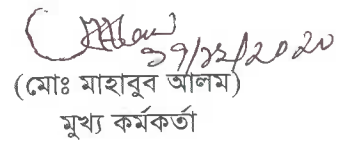 ২৭/১২/২০২০
(মোঃ মাহাবুব আলম)
মুখ্য কর্মকর্তা